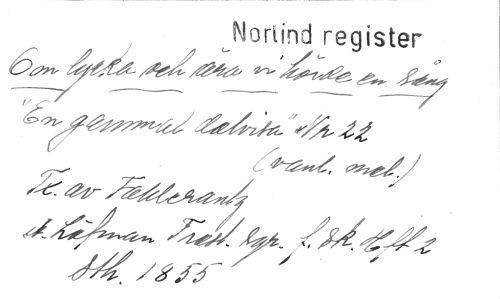 Norlind register
Om lycka och ära vi hörde en sång
"En gammal dalvisa" Nr 22
(vanl. mel.)
Tx. av Fahlcrantz
Löfman Sgr. f. sk. Hft 2
Sth. 1855